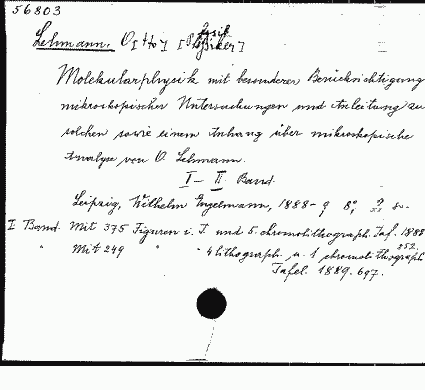 56803
Lehmann, O[tto] [Physiker]
Molekularphysik mit besonderer Berücksichtigung
mikroskopischer Untersuchungen und Anleitung zu
solchen sowie einem Anhang über mikroskopische
Analyse von O. Lehmann.
I-II Band.
Leipzig, Wilhelm Engelmann, 1888-9 8°,
I Band. Mit 375 Figuren i. T. und 5 chromolithograph. Taf. 1888
" Mit 249 " " 4 lithograph. u. 1 chromolithograph
Tafel. 1889. 697.